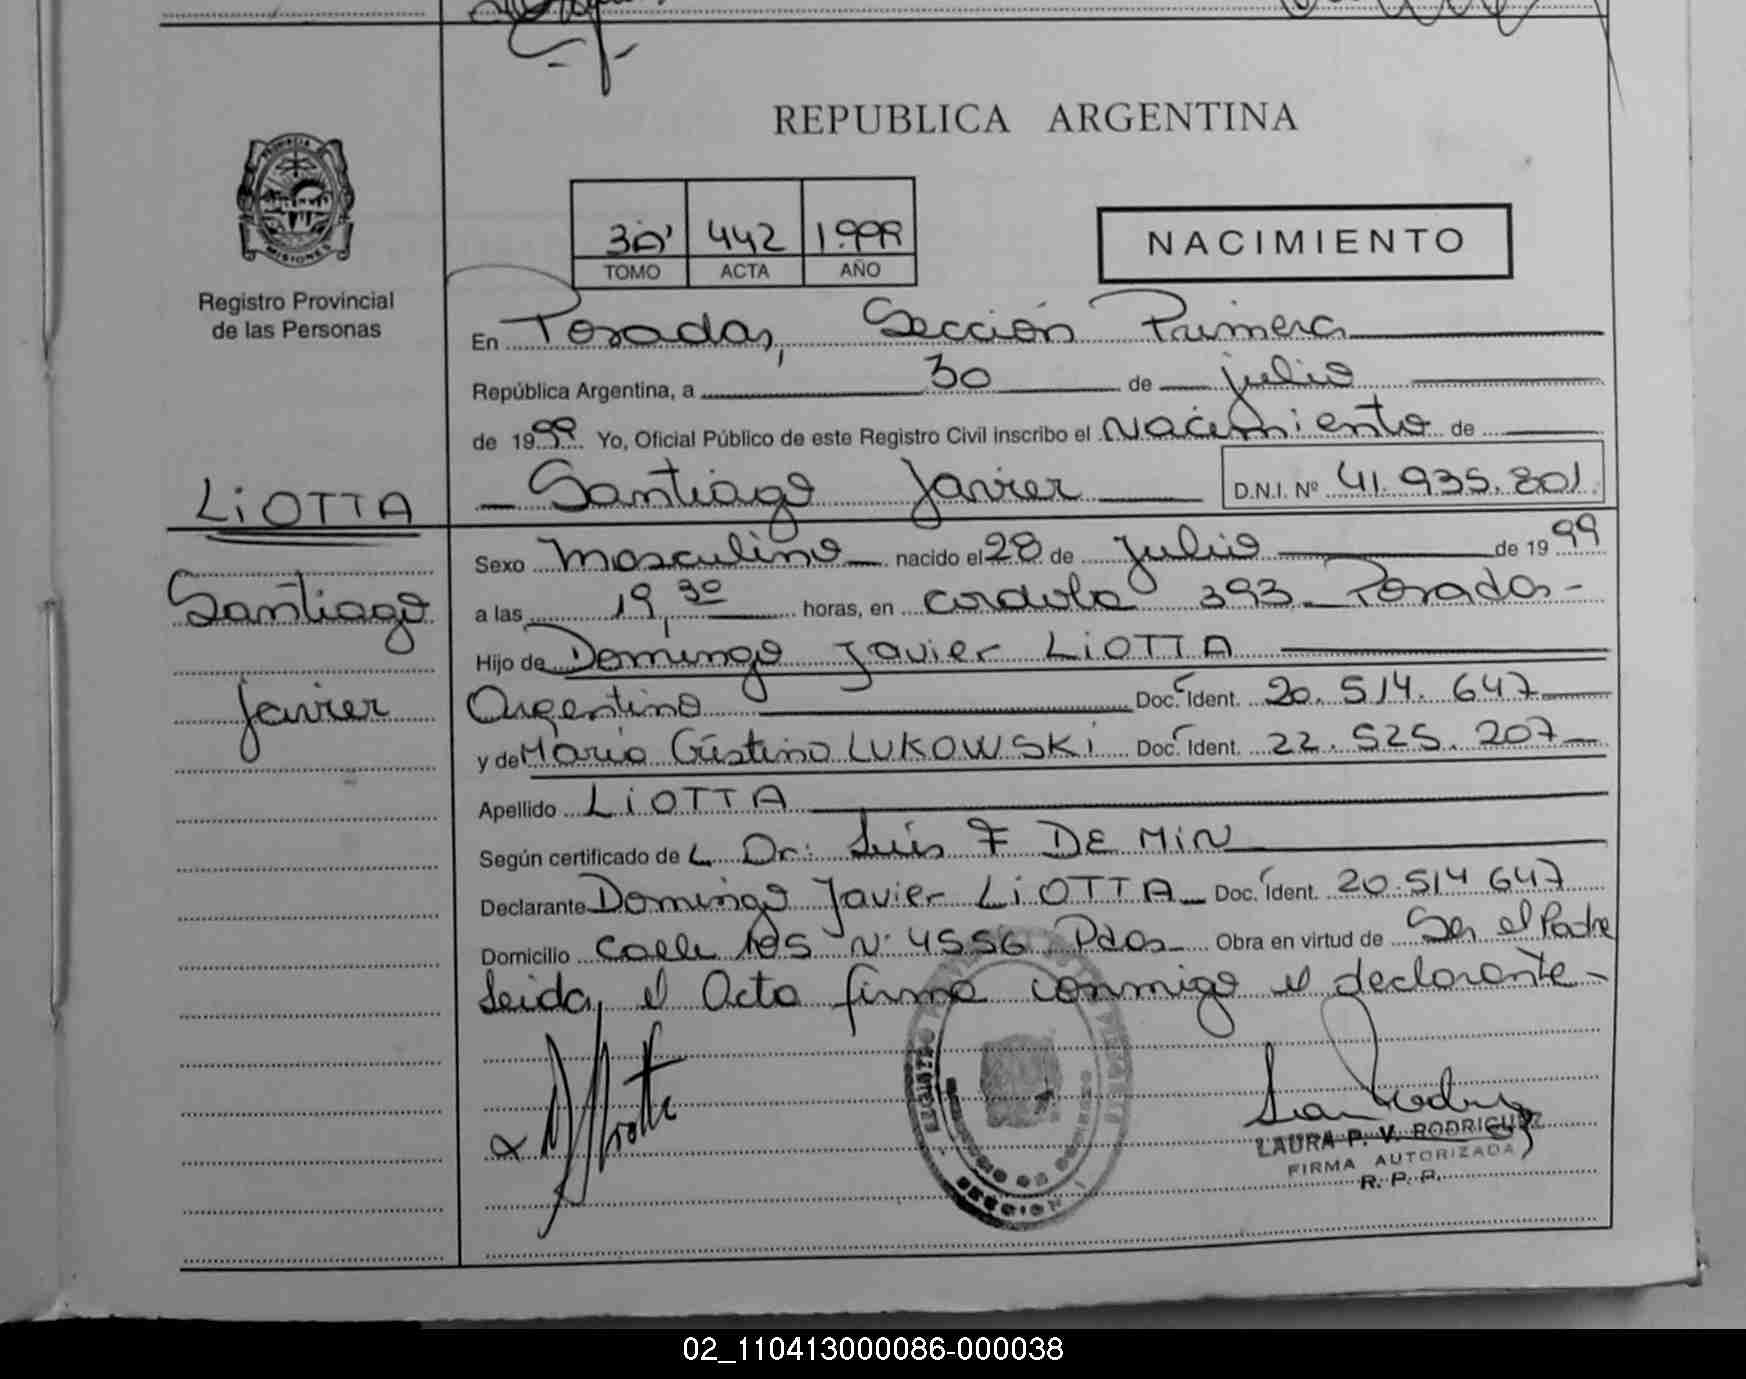 REPUBLICA ARGENTINA
PROVINCIA DE
MISIONES
Registro Provincial
de las Personas
442 1.999
TOMO ACTA AÑO
NACIMIENTO
En Posadas, Sección Primera
República Argentina, a 30 de julio
de 1999. Yo, Oficial Público de este Registro Civil inscribo el Nacimiento de
Santiago Javier D.N.I. Nº 41.935.801
LiOTTA
Santiago
Javier
Sexo Masculino nacido el 28 de Julio de 1999
a las 19,30 horas, en Cordoba 393 - Posadas -
Hijo de Domingo Javier LiOTTA
Argentino Doc. Ident. 20.514.647
y de Maria Cristina LUKOWSKi Doc. Ident. 22.525.207
Apellido LiOTTA
Según certificado de L Dr: Luis F DE MiN
Declarante Domingo Javier LiOTTA Doc. Ident. 20.514 647
Domicilio Calle 105 Nº 4556 Pdas Obra en virtud de Ser el Padre
Leida, el Acta firma conmigo el declarante -
LAURA P. V. RODRIGUEZ
FIRMA AUTORIZADA
R. P. P.
02_110413000086-000038